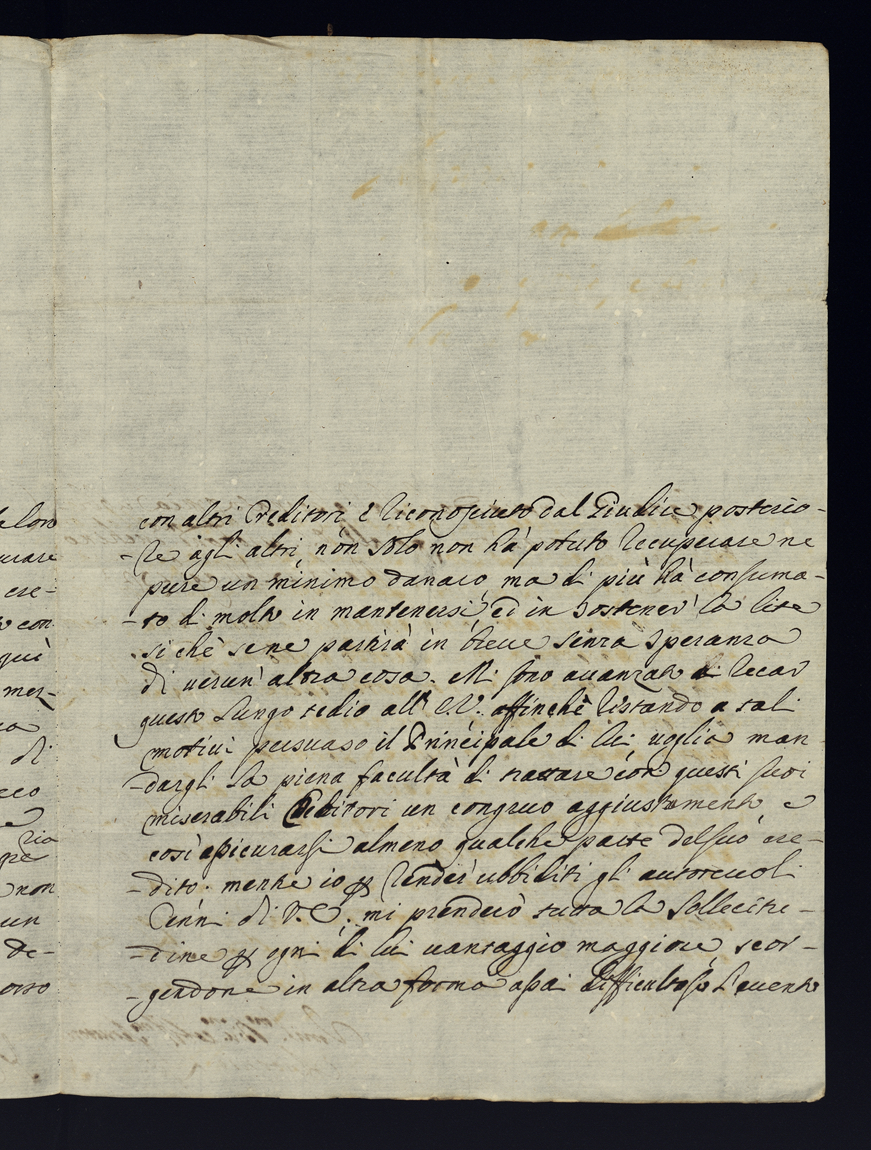 con altri Creditori è riconosciuto dal Giudice posterio-
-re àgl'altri, non solo non hà potuto recuperare ne
pure un mínimo danaro, ma di più hà consuma-
-to di molto in mantenersi, ed in sostener' la lite
si chè se ne partirà in breve senza speranza
di verun'altra cosa. Mi sono avanzato di recar
questo lungo tedio all'E.V. affinchè restando a tali
motivi persuaso il Principale di lei voglia man-
-dargli la piena facultà di trattare con questi suoi
miserabili Debitori un congruo aggiustamento e
così assicurarsi almeno qualche parte del suo cre-
-dito. mentre io per render' ubbiditi gl'autorevoli
Cenni di V.E. mi prenderò tutta la sollecitu-
-dine per ogni di lui vantaggio maggiore, scor-
-gendone in altra forma assai difficultoso l'evento